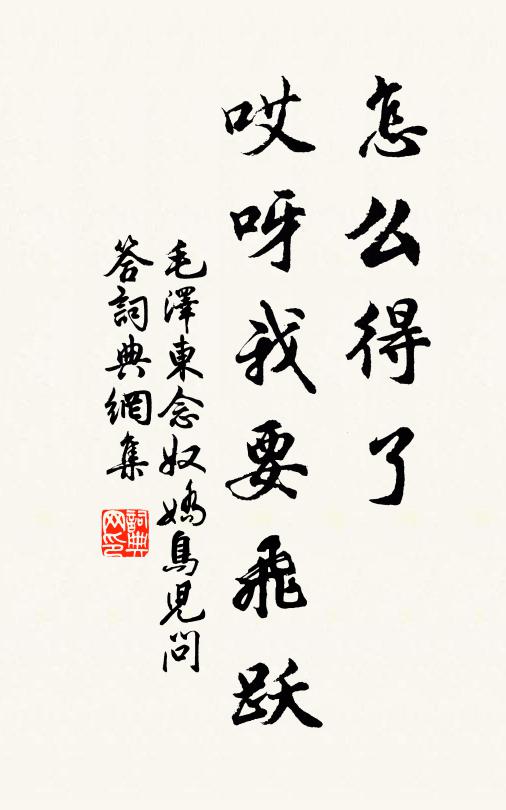 怎么得了
哎呀我要飛跃
毛澤東念奴嬌鳥児問
答詞典網集
詞典
网印